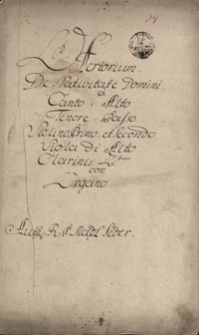 Offertorium
De Nativitate Domini
à
Canto Alto
Tenore Basso
Violino Primo et Secondo
Viola di Alto
Clarinis 2
con
Organo